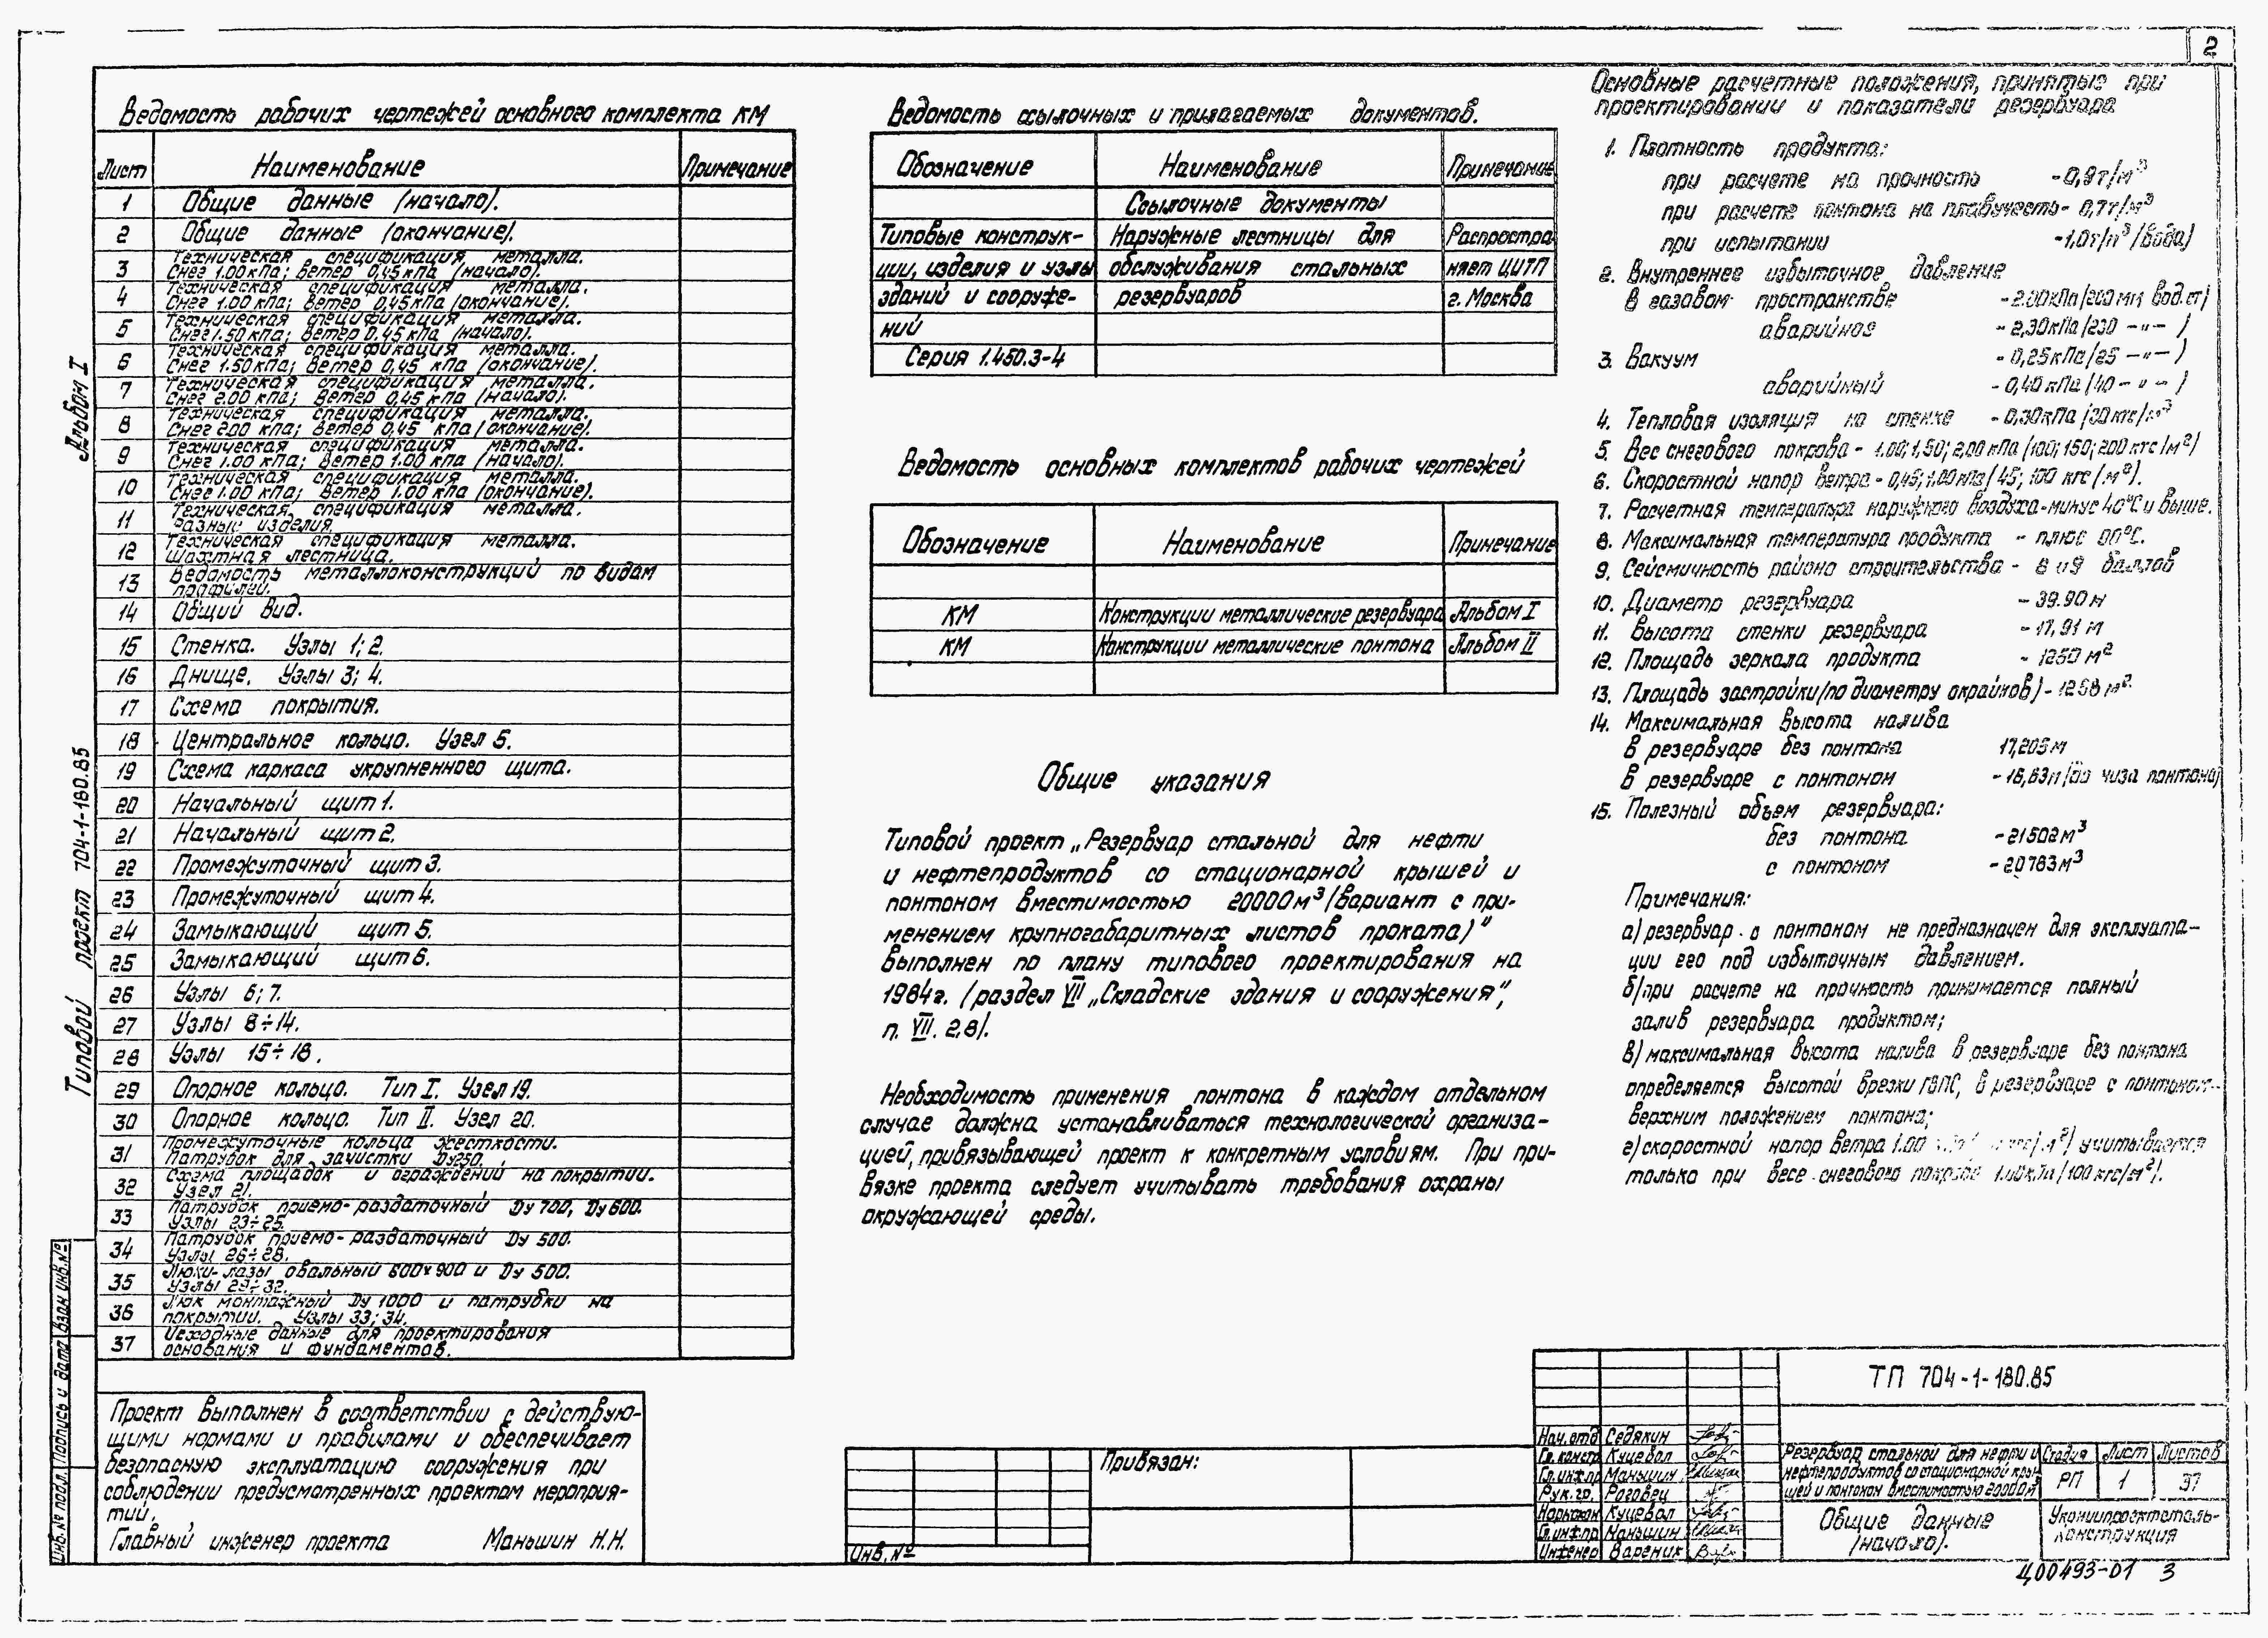 2
Альбом I
Типовой проект 704-1-180.85
Ведомость рабочих чертежей основного комплекта КМ
Лист Наименование Примечание
1 Общие данные (начало).
2 Общие данные (окончание).
3 Техническая спецификация металла.
Снег 1.00 кПа; Ветер 0,45 кПа (начало).
4 Техническая спецификация металла.
Снег 1.00 кПа; Ветер 0.45 кПа (окончание).
5 Техническая спецификация металла.
Снег 1.50 кПа; Ветер 0,45 кПа (начало).
6 Техническая спецификация металла.
Снег 1.50 кПа; Ветер 0,45 кПа (окончание).
7 Техническая спецификация металла.
Снег 2.00 кПа; Ветер 0,45 кПа (начало).
8 Техническая спецификация металла.
Снег 2.00 кПа; Ветер 0,45 кПа (окончание).
9 Техническая спецификация металла.
Снег 1.00 кПа; Ветер 1.00 кПа (начало).
10 Техническая спецификация металла.
Снег 1.00 кПа; Ветер 1.00 кПа (окончание).
11 Техническая спецификация металла.
Разные изделия.
12 Техническая спецификация металла.
Шахтная лестница.
13 Ведомость металлоконструкций по видам
профилей.
14 Общий вид.
15 Стенка. Узлы 1; 2.
16 Днище. Узлы 3; 4.
17 Схема покрытия.
18 Центральное кольцо. Узел 5.
19 Схема каркаса укрупненного щита.
20 Начальный щит 1.
21 Начальный щит 2.
22 Промежуточный щит 3.
23 Промежуточный щит 4.
24 Замыкающий щит 5.
25 Замыкающий щит 6.
26 Узлы 6; 7.
27 Узлы 8÷14.
28 Узлы 15÷18.
29 Опорное кольцо. Тип I. Узел 19.
30 Опорное кольцо. Тип II. Узел 20.
31 Промежуточные кольца жесткости.
Патрубок для зачистки Ду250.
32 Схема площадок и ограждений на покрытии.
Узел 21.
33 Патрубок приемо-раздаточный Ду 700, Ду 600.
Узлы 23÷25.
34 Патрубок приемо-раздаточный Ду 500.
Узлы 26÷28.
35 Люки-лазы овальный 600×900 и Ду 500.
Узлы 29÷32.
36 Люк монтажный Ду 1000 и патрубки на
покрытии. Узлы 33; 34.
37 Исходные данные для проектирования
основания и фундаментов.
Проект выполнен в соответствии с действую-
щими нормами и правилами и обеспечивает
безопасную эксплуатацию сооружения при
соблюдении предусмотренных проектом мероприя-
тий.
Главный инженер проекта Маньшин Н.Н.
Инв. № подл. Подпись и дата Взам инв. №
Ведомость ссылочных и прилагаемых документов.
Обозначение Наименование Примечание
Ссылочные документы
Типовые конструк- Наружные лестницы для Распростра
ции, изделия и узлы обслуживания стальных няет ЦИТП
зданий и сооруже- резервуаров г. Москва
ний
Серия 1.450.3-4
Ведомость основных комплектов рабочих чертежей
Обозначение Наименование Примечание
КМ Конструкции металлические резервуара Альбом I
КМ Конструкции металлические понтона Альбом II
Общие указания
Типовой проект „Резервуар стальной для нефти
и нефтепродуктов со стационарной крышей и
понтоном вместимостью 20000 м³ (вариант с при-
менением крупногабаритных листов проката)"
выполнен по плану типового проектирования на
1984г. (раздел VII „Складские здания и сооружения",
п. VII. 2.8).
Необходимость применения понтона в каждом отдельном
случае должна устанавливаться технологической организа-
цией, привязывающей проект к конкретным условиям. При при-
вязке проекта следует учитывать требования охраны
окружающей среды.
Основные расчетные положения, принятые при
проектировании и показатели резервуара
1. Плотность продукта:
при расчете на прочность - 0,9т/м³
при расчете понтона на плавучесть - 0,7т/м³
при испытании - 1,0т/м³ (вода)
2. Внутреннее избыточное давление
в газовом пространстве - 2.00кПа (200 мм вод.ст)
аварийное - 2,30кПа (230 -"-)
3. Вакуум - 0,25кПа (25 -"-)
аварийный - 0,40кПа (40 -"-)
4. Тепловая изоляция на стенке - 0,30кПа (30кгс/м³
5. Вес снегового покрова - 1.00; 1,50; 2,00 кПа (100; 150; 200 кгс/м²)
6. Скоростной напор ветра - 0,45; 1,00 кПа (45; 100 кгс/м²).
7. Расчетная температура наружного воздуха - минус 40°С и выше.
8. Максимальная температура продукта - плюс °С.
9. Сейсмичность района строительства - 8 и 9 баллов
10. Диаметр резервуара - 39.90 м
11. Высота стенки резервуара - 17,91 м
12. Площадь зеркала продукта - 1250 м²
13. Площадь застройки (по диаметру окрайков) - 1268 м².
14. Максимальная высота налива
в резервуаре без понтона 17,205 м
в резервуаре с понтоном - 16,63м (до низа понтона)
15. Полезный объем резервуара:
без понтона - 21502 м³
с понтоном - 20783 м³
Примечания:
а) резервуар с понтоном не предназначен для эксплуата-
ции его под избыточным давлением.
б) при расчете на прочность принимается полный
залив резервуара продуктом;
в) максимальная высота налива в резервуаре без понтона
определяется высотой врезки ГВПС, в резервуаре с понтоном -
верхним положением понтона;
г) скоростной напор ветра 1.00 учитывается
только при весе снегового покрова 1.00кПа (100 кгс/м²).
Привязан:
Инв. №
Нач. отд Седякин
Гл. констр Куцевал
Гл. инж. пр Маньшин
Рук. гр. Роговец
Нормокон Куцевал
Гл. инж. пр Маньшин
Инженер Вареник
ТП 704-1-180.85
Резервуар стальной для нефти и
нефтепродуктов со стационарной кры-
шей и понтоном вместимостью 20000 м³
Стадия Лист Листов
РП 1 37
Общие данные
(начало).
Укрниипроектсталь-
конструкция
Ц00493-01 3